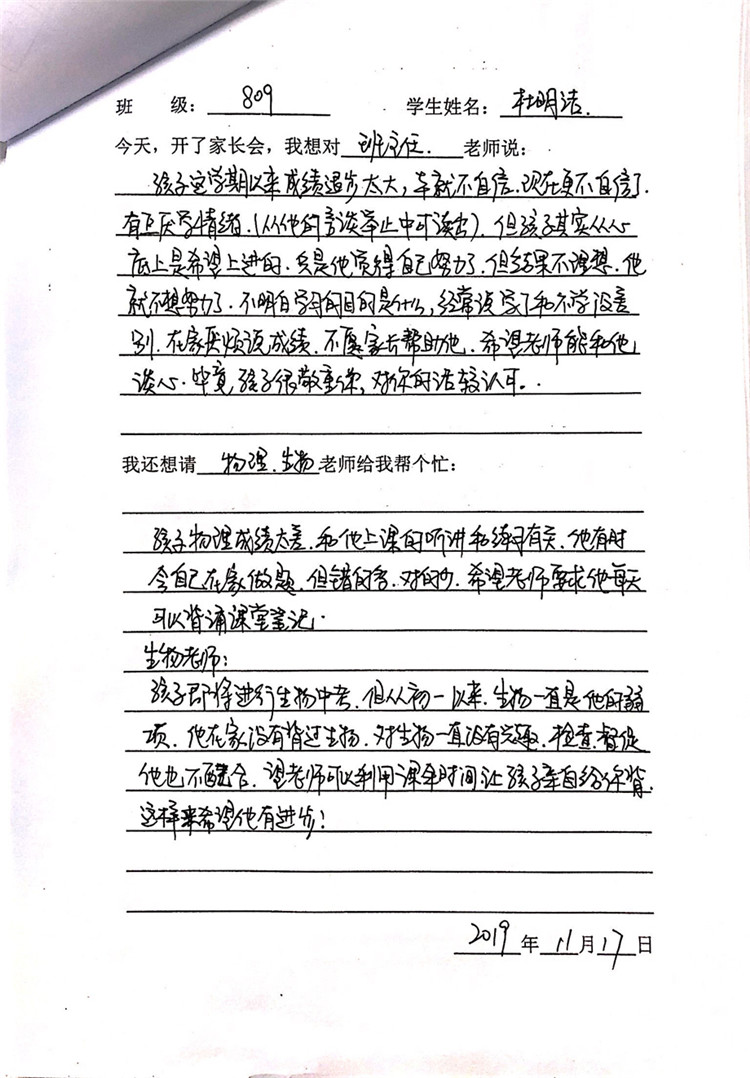 班 级: 809 学生姓名: 杜明洁.
今天，开了家长会，我想对 班主任. 老师说:
孩子这学期以来成绩退步太大，本就不自信.现在更不自信了.
有正厌学情绪.(从他的言谈举止中可读出).但孩子其实从心
底上是希望上进的.只是他觉得自己努力了.但结果不理想.他
就不想努力了.不明白学习的目的是什么,经常说学了和不学没差
别.在家厌烦谈成绩.不愿家长帮助他.希望老师能和他
谈心.毕竟孩子很敬重你,对你的话较认可..
我还想请 物理.生物 老师给我帮个忙:
孩子物理成绩太差.和他上课的听讲和练习有关.他有时
会自己在家做题.但错的多.对的少.希望老师要求他每天
可以背诵课堂笔记.
生物老师:
孩子即将进行生物中考.但从初一以来.生物一直是他的弱
项.他在家没有背过生物.对生物一直没有兴趣.检查.督促
他也不配合.望老师可以利用课余时间让孩子亲自给你背.
这样来希望他有进步!
2019 年 11 月 17 日